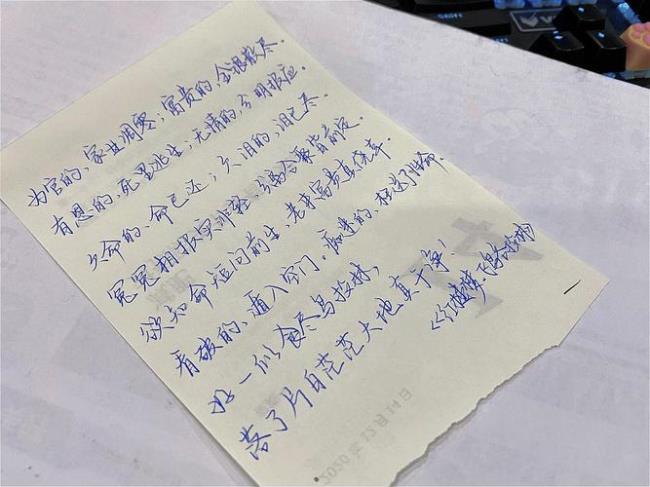 为官的,家业凋零;富贵的,金银散尽.
有恩的,死里逃生;无情的,分明报应.
欠命的,命已还;欠泪的,泪已尽.
冤冤相报实非轻,分离合聚皆前定.
欲知命短问前生,老来富贵真侥幸.
看破的,遁入空门.痴迷的,枉送了性命.
好一似食尽鸟投林,
落了片白茫茫大地真干净!
《红楼梦·飞鸟各投林》
2020年12月14日
Shift